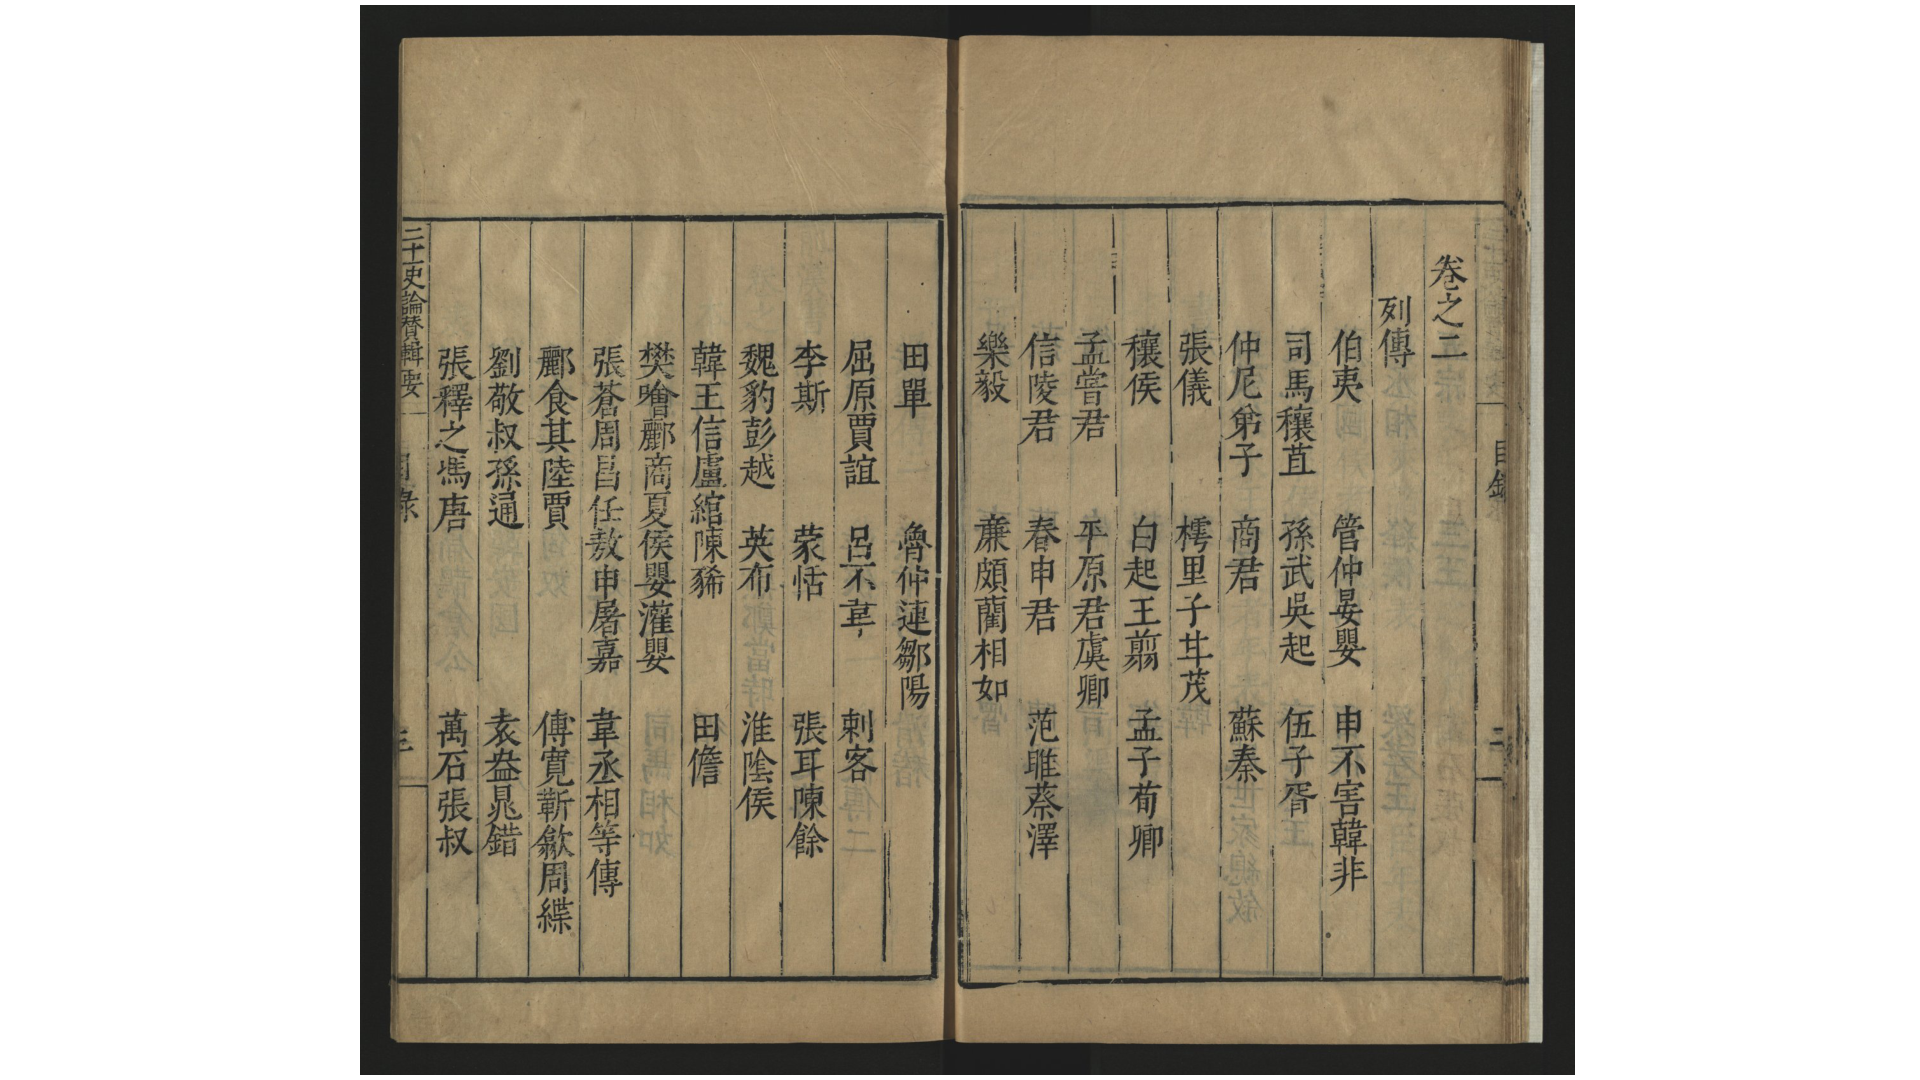 卷之二
列傳
伯夷 管仲晏嬰 申不害韓非
司馬穰苴 孫武吳起 伍子胥
仲尼弟子 商君 蘇秦
張儀 樗里子甘茂
穰侯 白起王翦 孟子荀卿
孟嘗君 平原君虞卿
信陵君 春申君 范雎蔡澤
樂毅 亷頗藺相如
田單 魯仲連鄒陽
屈原賈誼 呂不韋 刺客
李斯 蒙恬 張耳陳餘
魏豹彭越 英布 淮陰侯
韓王信盧綰陳豨 田儋
樊噲酈商夏侯嬰灌嬰
張蒼周昌任敖申屠嘉 韋丞相等傳
酈食其陸賈 傅寛靳歙周緤
劉敬叔孫通 袁盎鼂錯
張釋之馮唐 萬石張叔
二十一史論贊輯要 目錄 三